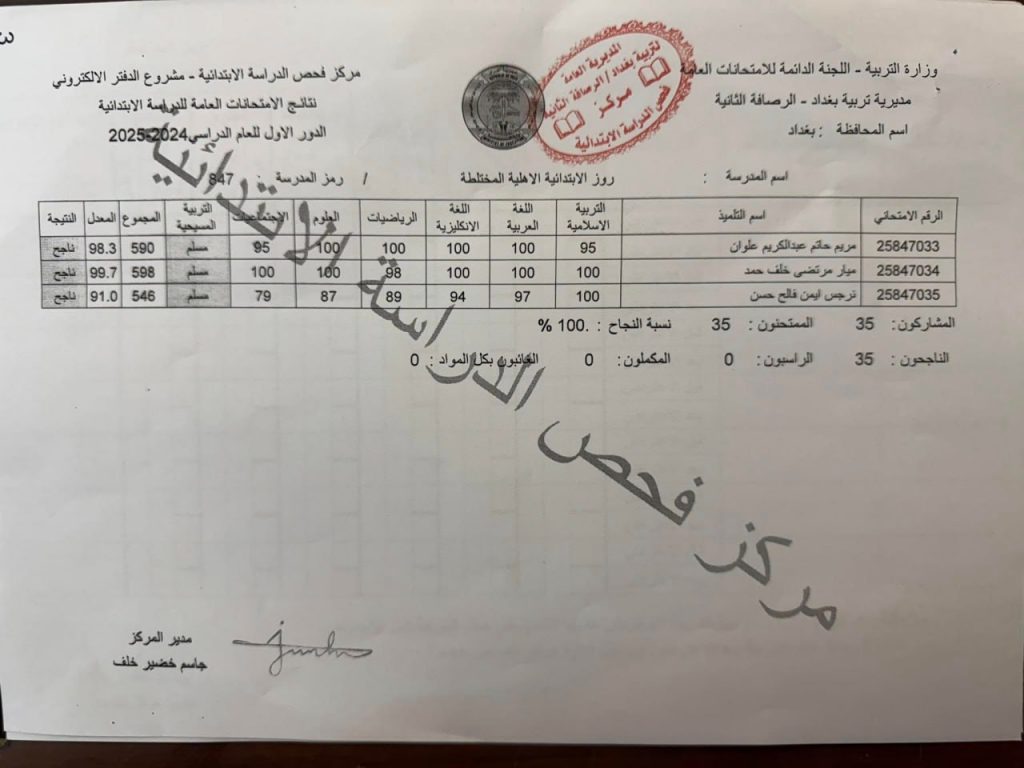 وزارة التربية - اللجنة الدائمة للامتحانات العامة
مديرية تربية بغداد - الرصافة الثانية
اسم المحافظة : بغداد
المديرية العامة
لتربية بغداد / الرصافة الثانية
مركز
فحص الدراسة الابتدائية
مركز فحص الدراسة الابتدائية - مشروع الدفتر الالكتروني
نتائج الامتحانات العامة للدراسة الابتدائية
الدور الاول للعام الدراسي 2024-2025
اسم المدرسة : روز الابتدائية الاهلية المختلطة / رمز المدرسة : 847
الرقم الامتحاني اسم التلميذ التربية الاسلامية اللغة العربية اللغة الانكليزية الرياضيات العلوم الاجتماعيات التربية المسيحية المجموع المعدل النتيجة
25847033 مريم حاتم عبدالكريم علوان 95 100 100 100 100 95 مسلم 590 98.3 ناجح
25847034 ميار مرتضى خلف حمد 100 100 100 98 100 100 مسلم 598 99.7 ناجح
25847035 نرجس ايمن فالح حسن 100 97 94 89 87 79 مسلم 546 91.0 ناجح
المشاركون: 35 الممتحنون: 35 نسبة النجاح : .100 %
الناجحون: 35 الراسبون: 0 المكملون: 0 الغائبون بكل المواد : 0
مركز فحص الدراسة الابتدائية
مدير المركز
جاسم خضير خلف
3